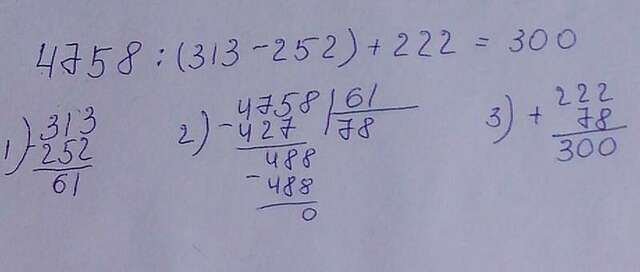 4758 : (313 - 252) + 222 = 300
1) 313
- 252
61
2) - 4758 | 61
427 78
488
- 488
0
3) + 222
78
300